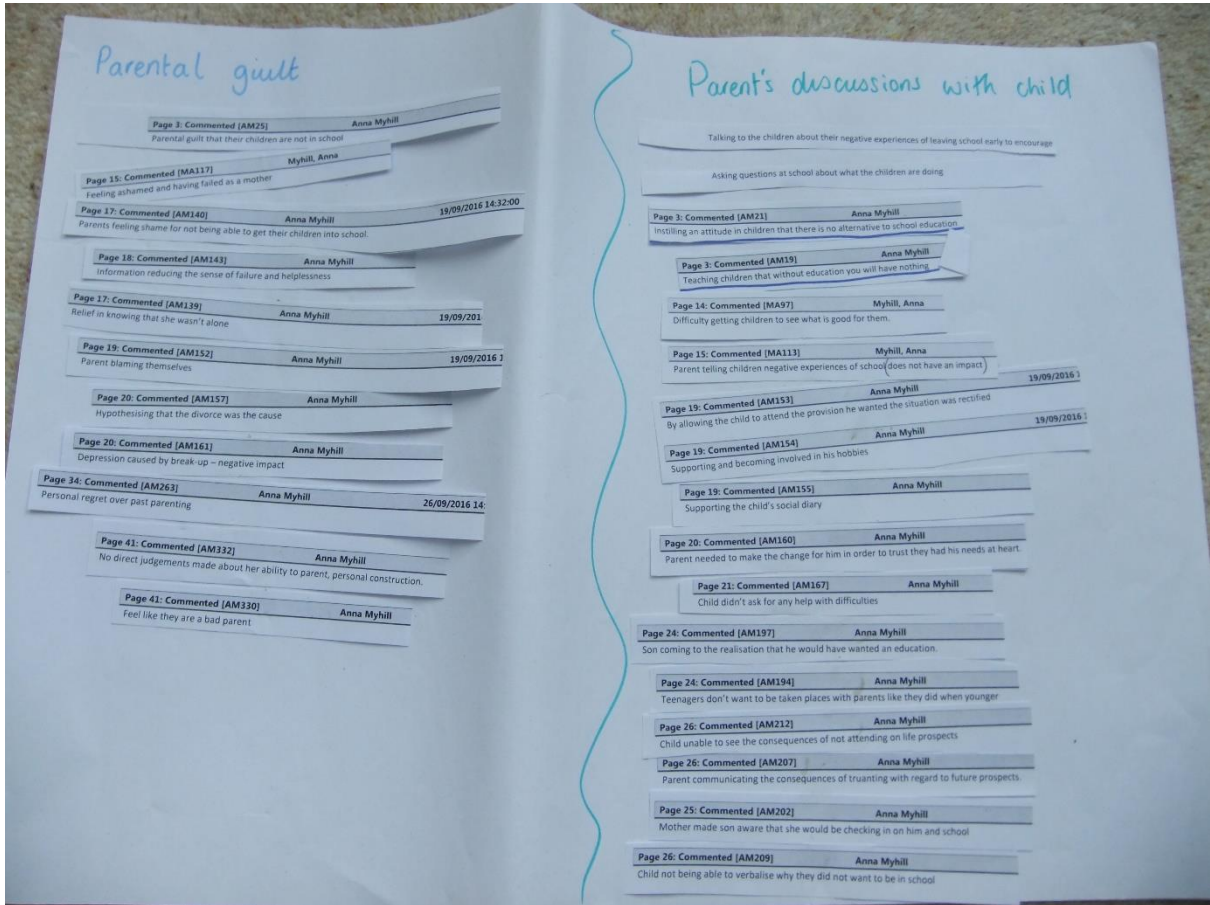 Parental giult
Page 3: Commented [AM25] Anna Myhill
Parental guilt that their children are not in school
Page 15: Commented [MA117] Myhill, Anna
Feeling ashamed and having failed as a mother
Page 17: Commented [AM140] Anna Myhill 19/09/2016 14:32:00
Parents feeling shame for not being able to get their children into school.
Page 18: Commented [AM143] Anna Myhill
Information reducing the sense of failure and helplessness
Page 17: Commented [AM139] Anna Myhill 19/09/201
Relief in knowing that she wasn't alone
Page 19: Commented [AM152] Anna Myhill 19/09/2016 1
Parent blaming themselves
Page 20: Commented [AM157] Anna Myhill
Hypothesising that the divorce was the cause
Page 20: Commented [AM161] Anna Myhill
Depression caused by break-up – negative impact
Page 34: Commented [AM263] Anna Myhill 26/09/2016 14:
Personal regret over past parenting
Page 41: Commented [AM332] Anna Myhill
No direct judgements made about her ability to parent, personal construction.
Page 41: Commented [AM330] Anna Myhill
Feel like they are a bad parent
Parent's discussions with child
Talking to the children about their negative experiences of leaving school early to encourage
Asking questions at school about what the children are doing
Page 3: Commented [AM21] Anna Myhill
Instilling an attitude in children that there is no alternative to school education
Page 3: Commented [AM19] Anna Myhill
Teaching children that without education you will have nothing
Page 14: Commented [MA97] Myhill, Anna
Difficulty getting children to see what is good for them.
Page 15: Commented [MA113] Myhill, Anna
Parent telling children negative experiences of school (does not have an impact)
Page 19: Commented [AM153] Anna Myhill 19/09/2016 1
By allowing the child to attend the provision he wanted the situation was rectified
Page 19: Commented [AM154] Anna Myhill 19/09/2016 1
Supporting and becoming involved in his hobbies
Page 19: Commented [AM155] Anna Myhill
Supporting the child's social diary
Page 20: Commented [AM160] Anna Myhill
Parent needed to make the change for him in order to trust they had his needs at heart.
Page 21: Commented [AM167] Anna Myhill
Child didn't ask for any help with difficulties
Page 24: Commented [AM197] Anna Myhill
Son coming to the realisation that he would have wanted an education.
Page 24: Commented [AM194] Anna Myhill
Teenagers don't want to be taken places with parents like they did when younger
Page 26: Commented [AM212] Anna Myhill
Child unable to see the consequences of not attending on life prospects
Page 26: Commented [AM207] Anna Myhill
Parent communicating the consequences of truanting with regard to future prospects.
Page 25: Commented [AM202] Anna Myhill
Mother made son aware that she would be checking in on him and school
Page 26: Commented [AM209] Anna Myhill
Child not being able to verbalise why they did not want to be in school